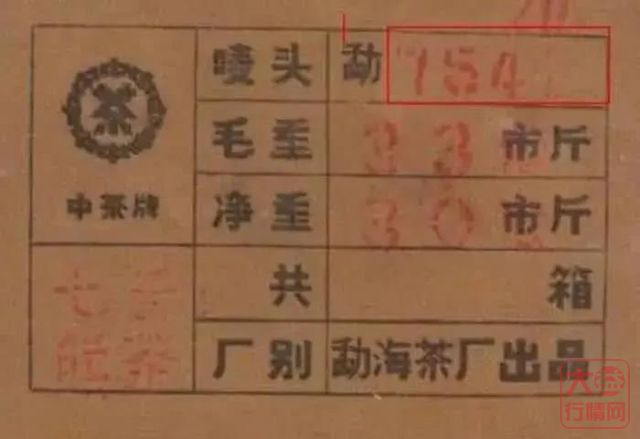 唛头 勐 754
毛重 33 市斤
中茶牌 净重 30 市斤
七子 共 箱
饼茶 厂别 勐海茶厂出品
大益
行情网